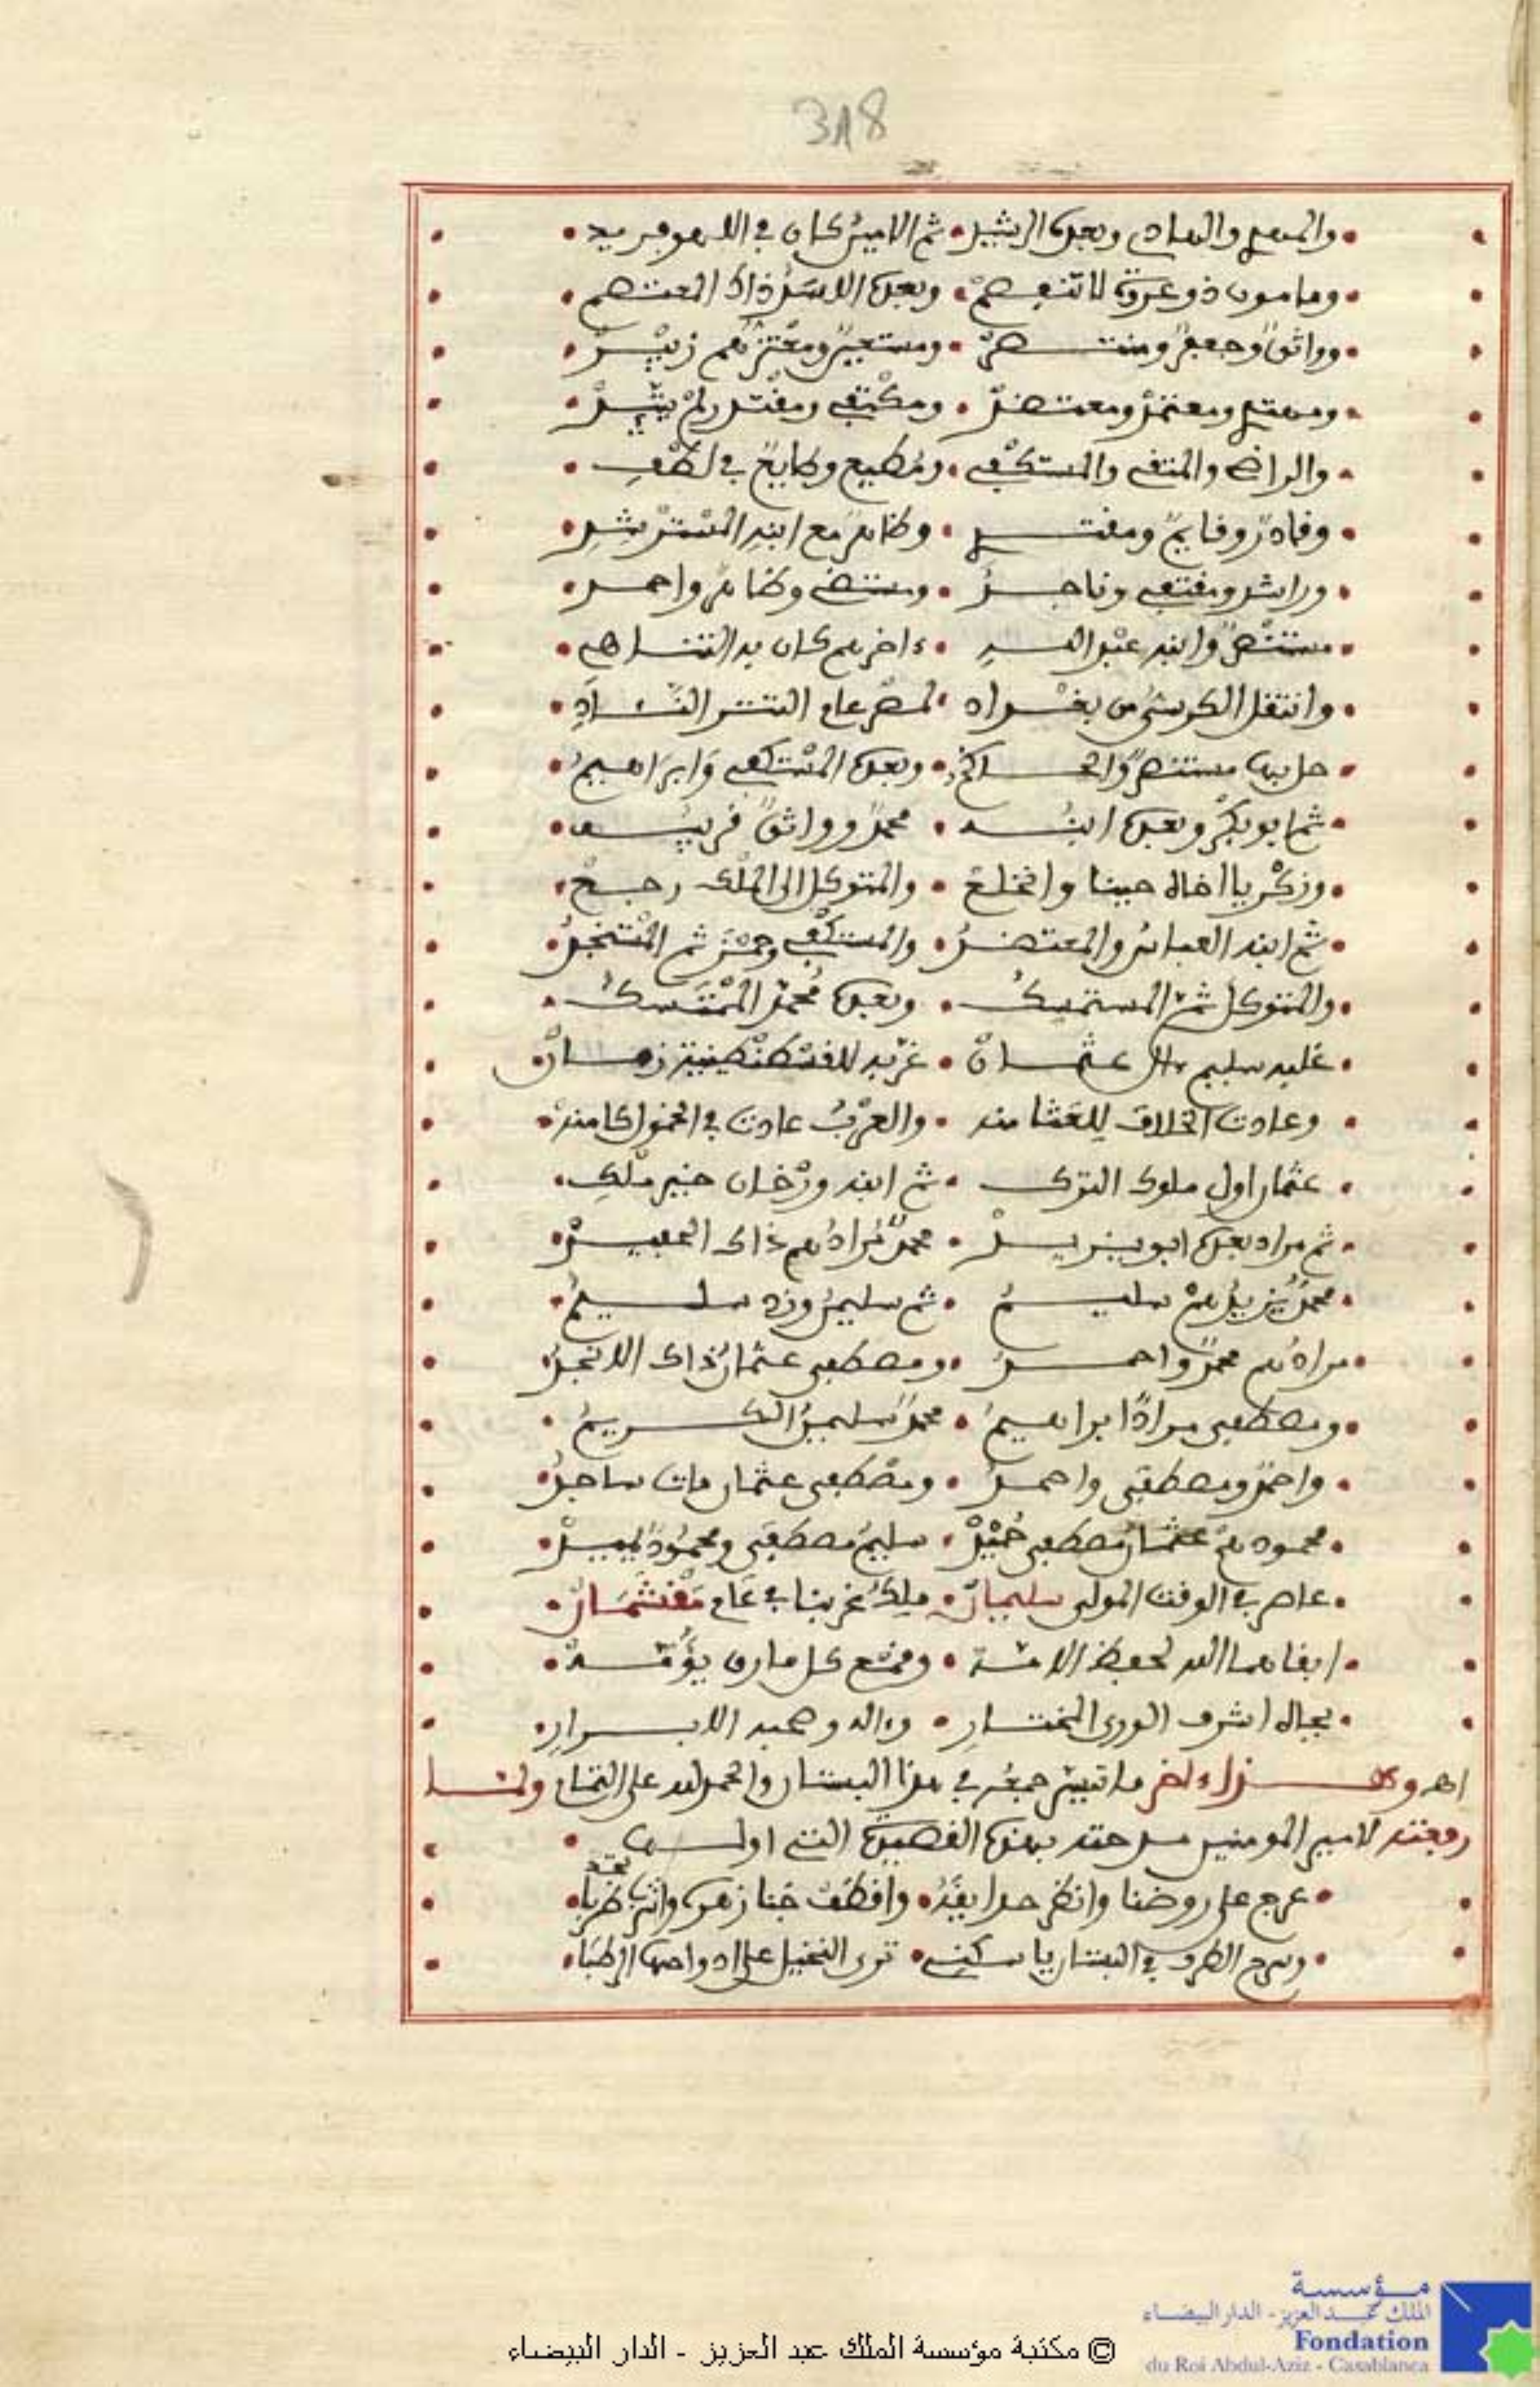 318
والمهدي والهادي وبعده الرشيد • ثم الامين كان في اللهو فريد
ومامون ذو عروة لا تنفصم • وبعده الاسد ذاك المعتصم
وواثق وجعفر ومنتصر • ومستعين ومعتز هم زبير
ومهتد ومعتمد ومعتضد • ومكتفي ومقتدر لم يشد
والراضي والمتقي والمستكفي • ومطيع وطايع في لطف
وقادر وقايم ومقتدي • وظاهر مع ابنه المسترشد
وراشد ومقتفي وناجد • ومستضي وظاهر واحمد
مستنصر وابنه عبد الله • ءاخرهم كان به التناهي
وانتقل الكرسي من بغداد • لمصر عام التتر
حل بها مستنصر والحاكم • وبعده المستكفي وابراهيم
ثم ابو بكر وبعده ابنه • محمد وواثق قريبه
وزكريا اخاه حينا وانخلع • والمتوكل الى الملك رجع
ثم ابنه العباس والمعتضد • والمستكفي وحمزة ثم المستنجد
والمتوكل ثم المستمسك • وبعده محمد المتمسك
غلبه سليم ءال عثمان • غربه للقسطنطينية زمان
وعادت الخلافة للعثامنه • والعرب عادت في الخمول كامنه
عثمان اول ملوك الترك • ثم ابنه ورخان خير ملك
ثم مراد بعده ابو يزيد • محمد مراد هم ذاك الحفيد
محمد يزيدهم سليم • ثم سليمن وزد سليم
مرادهم محمد واحمد • ومصطفى عثمان ذاك الانجد
ومصطفى مراد ابراهيم • محمد سليمن الكريم
واحمد ومصطفى واحمد • ومصطفى عثمان مات ساجد
محمود هم عثمان مصطفى حميد • سليم مصطفى ومحمود
عاصر في الوقت المولى سليمان • ملك غربنا في عام
ابقاهما الله لحفظ الامة • ومنع كل مارق يؤمه
بجاه اشرف الورى المختار • وءاله وصحبه الابرار
اهـ وهذا ءاخر ما تيسر جمعه في هذا البستان والحمد لله على التمام ولما
رفعته لامير المومنين مدحته بهذه القصيدة التي اولها
عرج على روضنا وانظر حدايقه • واقطف جنا زهره وانثر بقته طربا
وسرح الطرف في البستان يا سكني • ترى النخيل على ادواحها الرطبا
مؤسسة
الملك عبد العزيز - الدار البيضاء
Fondation
du Roi Abdul-Aziz - Casablanca
© مكتبة مؤسسة الملك عبد العزيز - الدار البيضاء